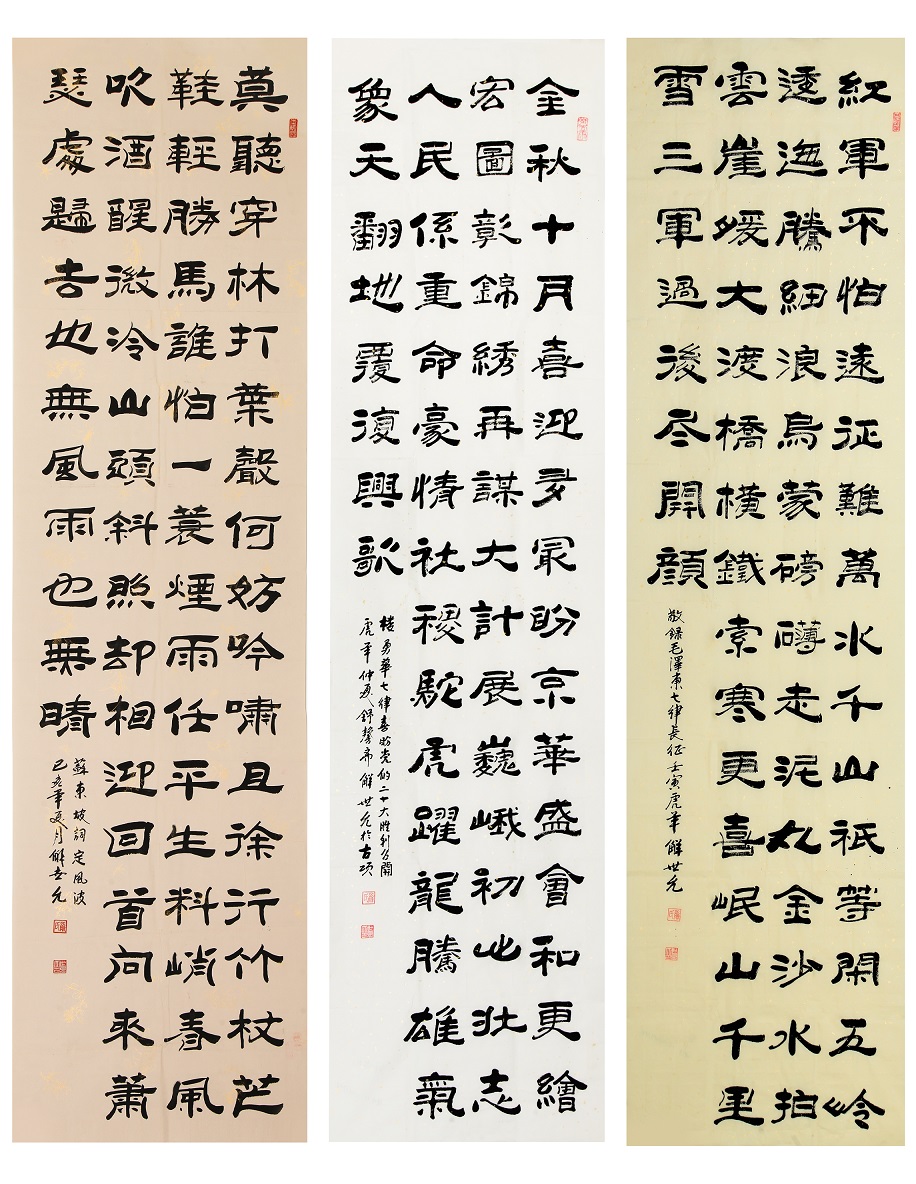 紅軍不怕遠征難萬水千山祇等閑五岭
逶迤騰細浪烏蒙磅礴走泥丸金沙水拍
雲崖煖大渡橋橫鐵索寒更喜岷山千里
雪三軍過後尽開顔
敬録毛澤東七律長征壬寅虎年解世允
金秋十月喜迎多冣盼京華盛會和更繪
宏圖彰錦綉再謀大計展巍峨初心壯志
人民係重命豪情社稷駝虎躍龍騰雄氣
象天翻地覆復興歌
勇華七律喜盼党的二十大胜利召開
虎年仲夏馨斋解世允於古項
莫聽穿林打葉聲何妨吟嘯且徐行竹杖芒
鞋輕勝馬誰怕一蓑煙雨任平生料峭春風
吹酒醒微冷山頭斜照却相迎回首向來蕭
瑟處歸去也無風雨也無晴
蘇東坡詞定風波
己亥年夏月解世允